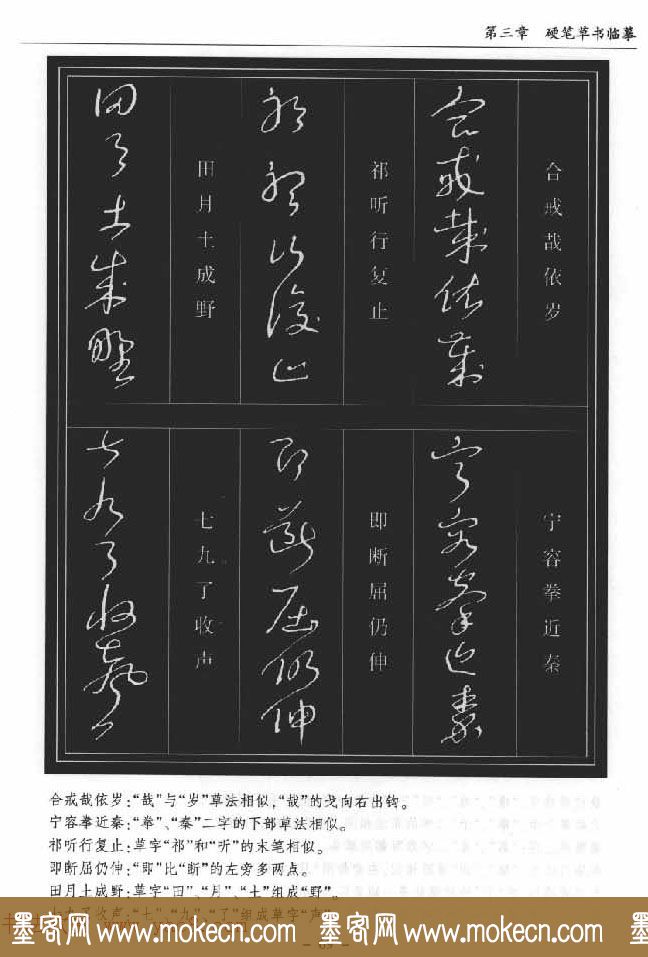 第三章 硬笔草书临摹
合戒哉依岁
合戒哉依岁
祁听行复止
祁听行复止
田月土成野
田月土成野
宁容拳近秦
宁容拳近秦
即断屈仍伸
即断屈仍伸
七九了收声
七九了收声
合戒哉依岁:“哉”与“岁”草法相似,“哉”的戈向右出钩。
宁容拳近秦:“拳”、“秦”二字的下部草法相似。
祁听行复止:草字“祁”和“听”的末笔相似。
即断屈仍伸:“即”比“断”的左旁多两点。
田月土成野:草字“田”、“月”、“土”组成“野”。
七九了收声:“七”、“九”、“了”组成草字“声”
墨客网 www.mokecn.com 墨客网 www.mokecn.com